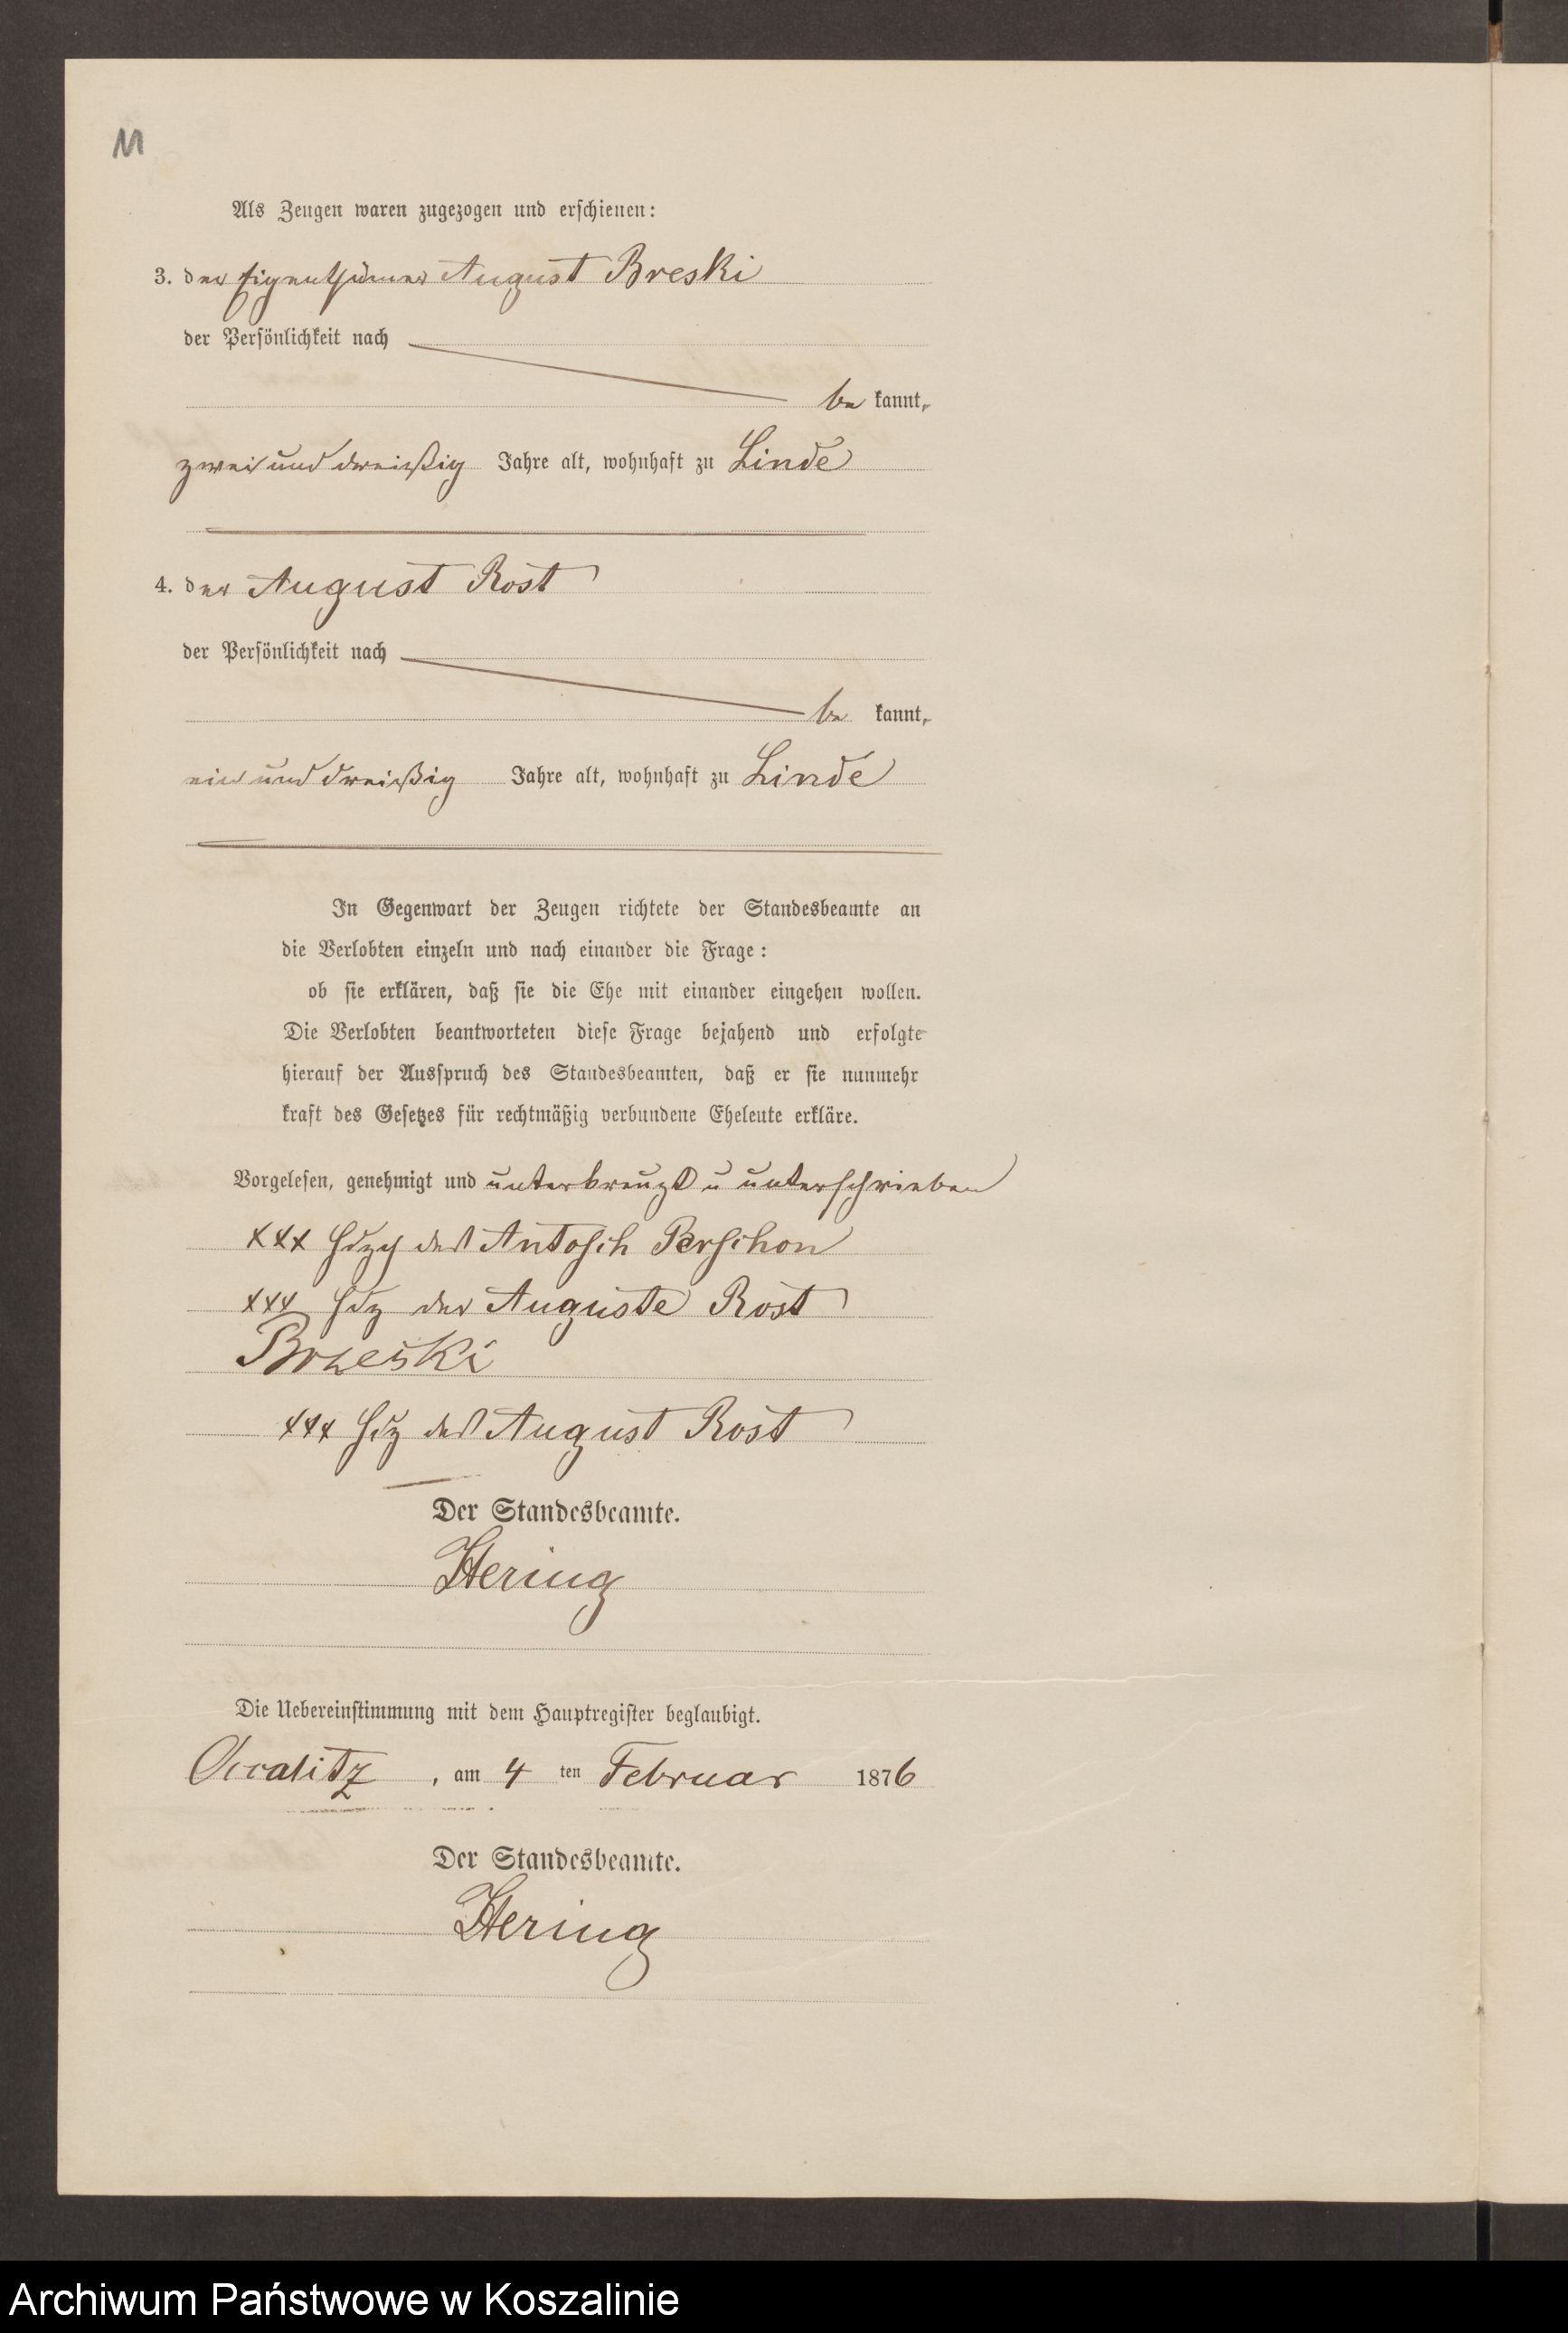 11
Als Zeugen waren zugezogen und erschienen:
3. der Eigenthümer August Breski
der Persönlichkeit nach
be kannt,
zwei und dreißig Jahre alt, wohnhaft zu Linde
4. der August Rost
der Persönlichkeit nach
be kannt,
ein und dreißig Jahre alt, wohnhaft zu Linde
In Gegenwart der Zeugen richtete der Standesbeamte an
die Verlobten einzeln und nach einander die Frage:
ob sie erklären, daß sie die Ehe mit einander eingehen wollen.
Die Verlobten beantworteten diese Frage bejahend und erfolgte
hierauf der Ausspruch des Standesbeamten, daß er sie nunmehr
kraft des Gesetzes für rechtmäßig verbundene Eheleute erkläre.
Vorgelesen, genehmigt und unterkreuzt u unterschrieben
xxx des Antosch Perschon
xxx Hdz der Auguste Rost
Brzeski
xxx Hdz des August Rost
Der Standesbeamte.
Hering
Die Uebereinstimmung mit dem Hauptregister beglaubigt.
Occalitz, am 4 ten Februar 1876
Der Standesbeamte.
Hering
Archiwum Państwowe w Koszalinie